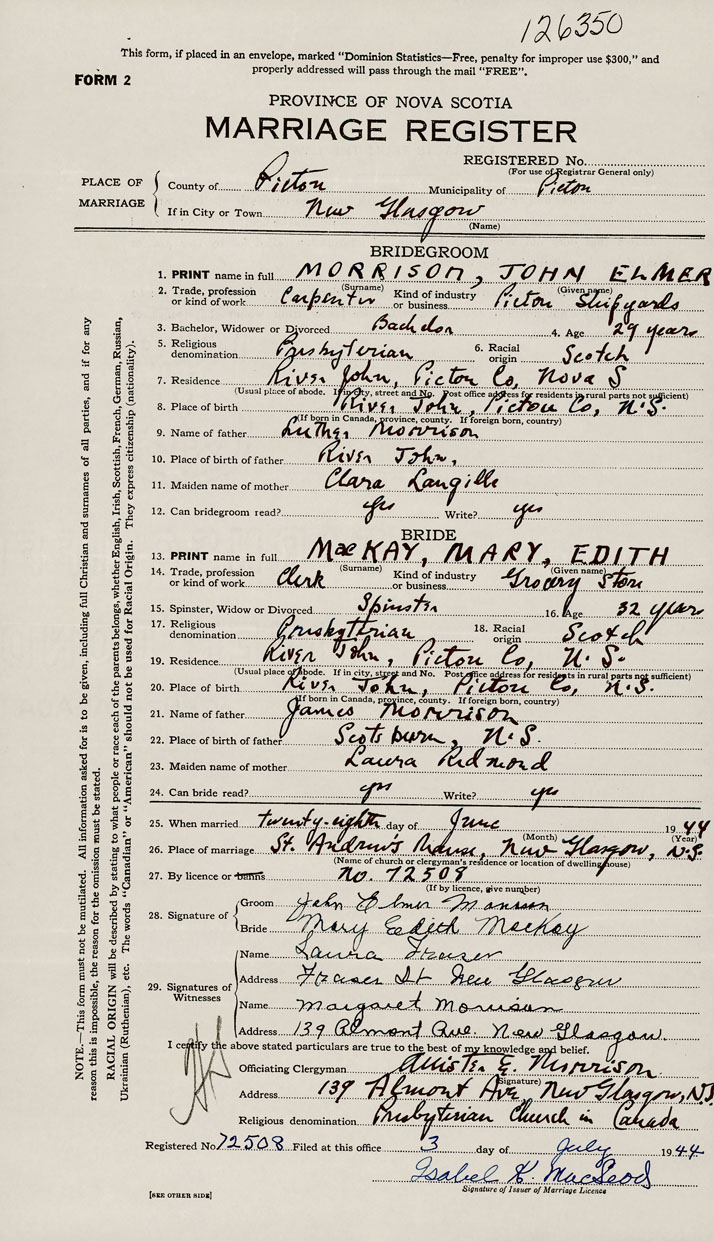 126350
This form, if placed in an envelope, marked "Dominion Statistics—Free, penalty for improper use $300," and
properly addressed will pass through the mail "FREE".
FORM 2
PROVINCE OF NOVA SCOTIA
MARRIAGE REGISTER
REGISTERED No.
(For use of Registrar General only)
PLACE OF MARRIAGE
County of Picton Municipality of Picton
If in City or Town New Glasgow
(Name)
BRIDEGROOM
1. PRINT name in full MORRISON, JOHN ELMER
(Surname) (Given name)
2. Trade, profession or kind of work Carpenter Kind of industry or business Picton Shipyards
3. Bachelor, Widower or Divorced Bachelor 4. Age 29 years
5. Religious denomination Presbyterian 6. Racial origin Scotch
7. Residence River John, Picton Co, Nova S
(Usual place of abode. If in city, street and No. Post office address for residents in rural parts not sufficient)
8. Place of birth River John, Picton Co, N.S.
(If born in Canada, province, county. If foreign born, country)
9. Name of father Luther Morrison
10. Place of birth of father River John,
11. Maiden name of mother Clara Langille
12. Can bridegroom read? yes Write? yes
BRIDE
13. PRINT name in full MacKAY, MARY, EDITH
(Surname) (Given name)
14. Trade, profession or kind of work Clerk Kind of industry or business Grocery Store
15. Spinster, Widow or Divorced Spinster 16. Age 32 years
17. Religious denomination Presbyterian 18. Racial origin Scotch
19. Residence River John, Picton Co, N.S.
(Usual place of abode. If in city, street and No. Post office address for residents in rural parts not sufficient)
20. Place of birth River John, Picton Co, N.S.
(If born in Canada, province, county. If foreign born, country)
21. Name of father James Morrison
22. Place of birth of father Scotsburn, N.S.
23. Maiden name of mother Laura Redmond
24. Can bride read? yes Write? yes
25. When married twenty-eighth day of June 1944
(Month) (Year)
26. Place of marriage St. Andrew's Manse, New Glasgow, N.S.
(Name of church or clergyman's residence or location of dwelling house)
27. By licence or banns No. 72508
(If by licence, give number)
28. Signature of
Groom John Elmer Morrison
Bride Mary Edith MacKay
29. Signatures of Witnesses
Name Laura Fraser
Address Fraser St New Glasgow
Name Margaret Morrison
Address 139 Almont Ave. New Glasgow.
I certify the above stated particulars are true to the best of my knowledge and belief.
Officiating Clergyman E. Morrison
(Signature)
Address 139 Almont Ave, New Glasgow, N.S.
Religious denomination Presbyterian Church in Canada
Registered No. 72508 Filed at this office 3 day of July 1944
Isabel K. MacLeod
Signature of Issuer of Marriage Licence
[SEE OTHER SIDE]
NOTE.—This form must not be mutilated. All information asked for is to be given, including full Christian and surnames of all parties, and if for any
reason this is impossible, the reason for the omission must be stated.
RACIAL ORIGIN will be described by stating to what people or race each of the parents belongs, whether English, Irish, Scottish, French, German, Russian,
Ukrainian (Ruthenian), etc. The words "Canadian" or "American" should not be used for Racial Origin. They express citizenship (nationality).